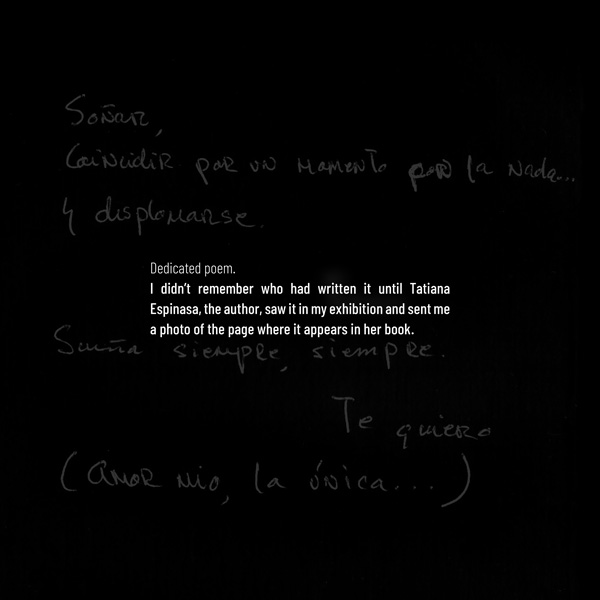 Soñar,
Coincidir por un momento por la nada...
y desplomarse.
Dedicated poem.
I didn't remember who had written it until Tatiana
Espinasa, the author, saw it in my exhibition and sent me
a photo of the page where it appears in her book.
Sueña siempre, siempre.
Te quiero
(Amor mio, la única...)